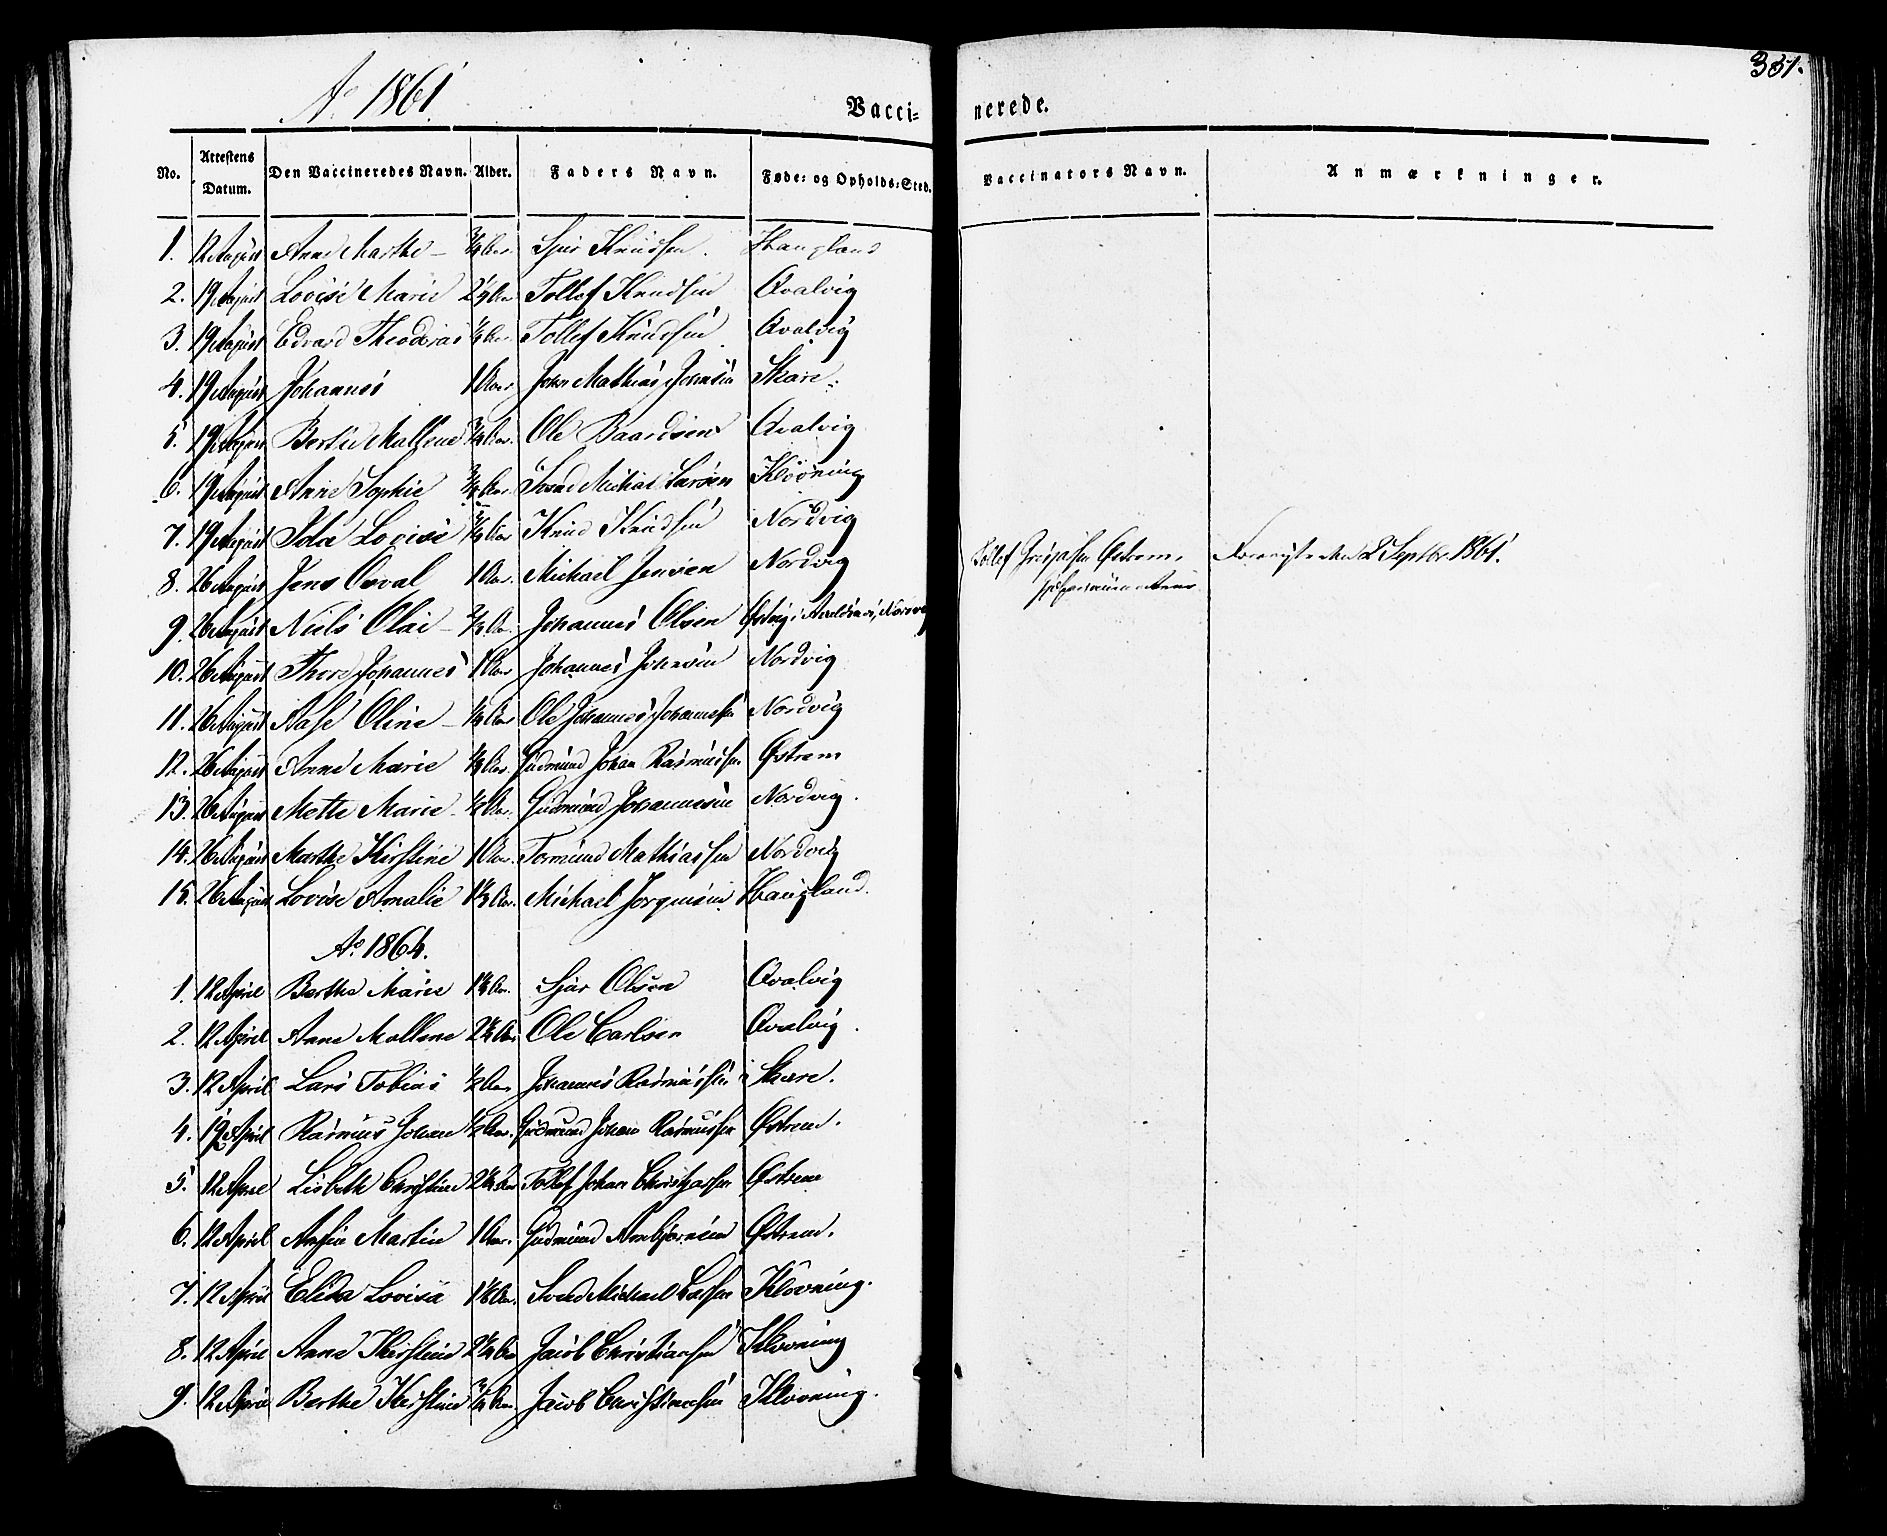 Ao 1861
331.
Vacci=nerede.
No. Attestens Datum. Den Vaccineredes Navn. Alder. Faders Navn. Føde= og Opholds=Sted. Vaccinators Navn. Anmærkninger.
1. 12 August Anne Marthe - 3/4 Aar. Knudsen. Haugland
2. 19 August Lovise Marie Tollef Knudsen Qvalvig
3. 19 August Edvard Theodorus Aar. Tollef Knudsen Qvalvig
4. 19 August Johannes 1 Aar John Mathias Johnsen Skare.
5. 19 August Berthe Mallene 3/4 Aar. Ole Baardsen Qvalvig
6. 19 August Anne Sophie 3/4 Aar. Svend Michael Larsen Kløvning
7. 19 August Ida Lovise Aar Knud Knudsen Nordvig
8. 26 August Jens Osval 1 Aar. Michael Jensen Nordvig
Tollef Østrem, Foreviist den 2 Septbr. 1861.
9. 26 August Niels Olai - Aar. Johannes Olsen
10. 26 August Thore Johannes 1 Aar Johannes Johnsen Nordvig
11. 26 August Aase Oline - Aar Ole Johannes Johannessen Nordvig
12. 26 August Anne Marie Aar. Gudmund Johan Rasmussen Østrem
13. 26 August Mette Marie - 1/2 Aar. Gudmund Johannessen Nordvig.
14. 26 August Marthe Kirstine 1 Aar. Tormund Mathiassen Nordvig
15. 26 August Lovise Amalie 1 1/2 Aar. Michael Jørgensen Haugland.
Ao 1864.
1. 12 April Berthe Marie Aar. Sjur Olsen Qvalvig
2. 12 April Anne Mallene Aar. Ole Carlsen Qvalvig.
3. 12 April Lars Tobias 1/2 Aar Johannes Rasmussen Skare.
4. 12 April Rasmus Johan 1/2 Aar. Gudmund Johan Rasmussen Østrem.
5. 12 April Lisbeth Christine Aar Tollef Johan Christjansen Østrem
6. 12 April Martin 1 Aar. Gudmund Ambjørnsen Østrem.
7. 12 April Elida Lovisa Aar. Svend Michael Larsen Kløvning.
8. 12 April Anne Kirstine Aar Jacob Christiansen Kløvning
9. 12 April Berthe Kirstine 3/4 Aar. Jacob Christiansen Kløvning.